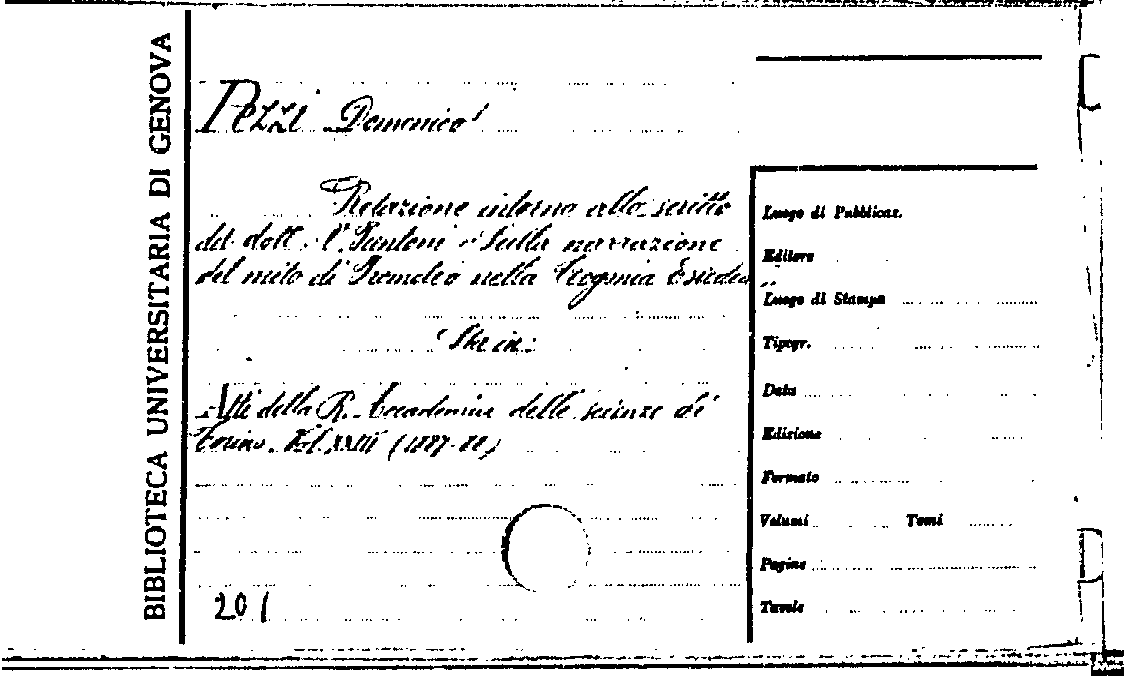 BIBLIOTECA UNIVERSITARIA DI GENOVA
Pezzi Domenico
Relazione intorno allo scritto
del dott. V. Puntoni "Sulla narrazione
del mito di Prometeo nella Teogonia Esiodea"
Sta in:
Atti della R. Accademia delle scienze di
Torino. Vol. XXIII (1887-88)
201
Luogo di Pubblicaz.
Editore
Luogo di Stampa
Tipogr.
Data
Edizione
Formato
Volumi Tomi
Pagine
Tavole